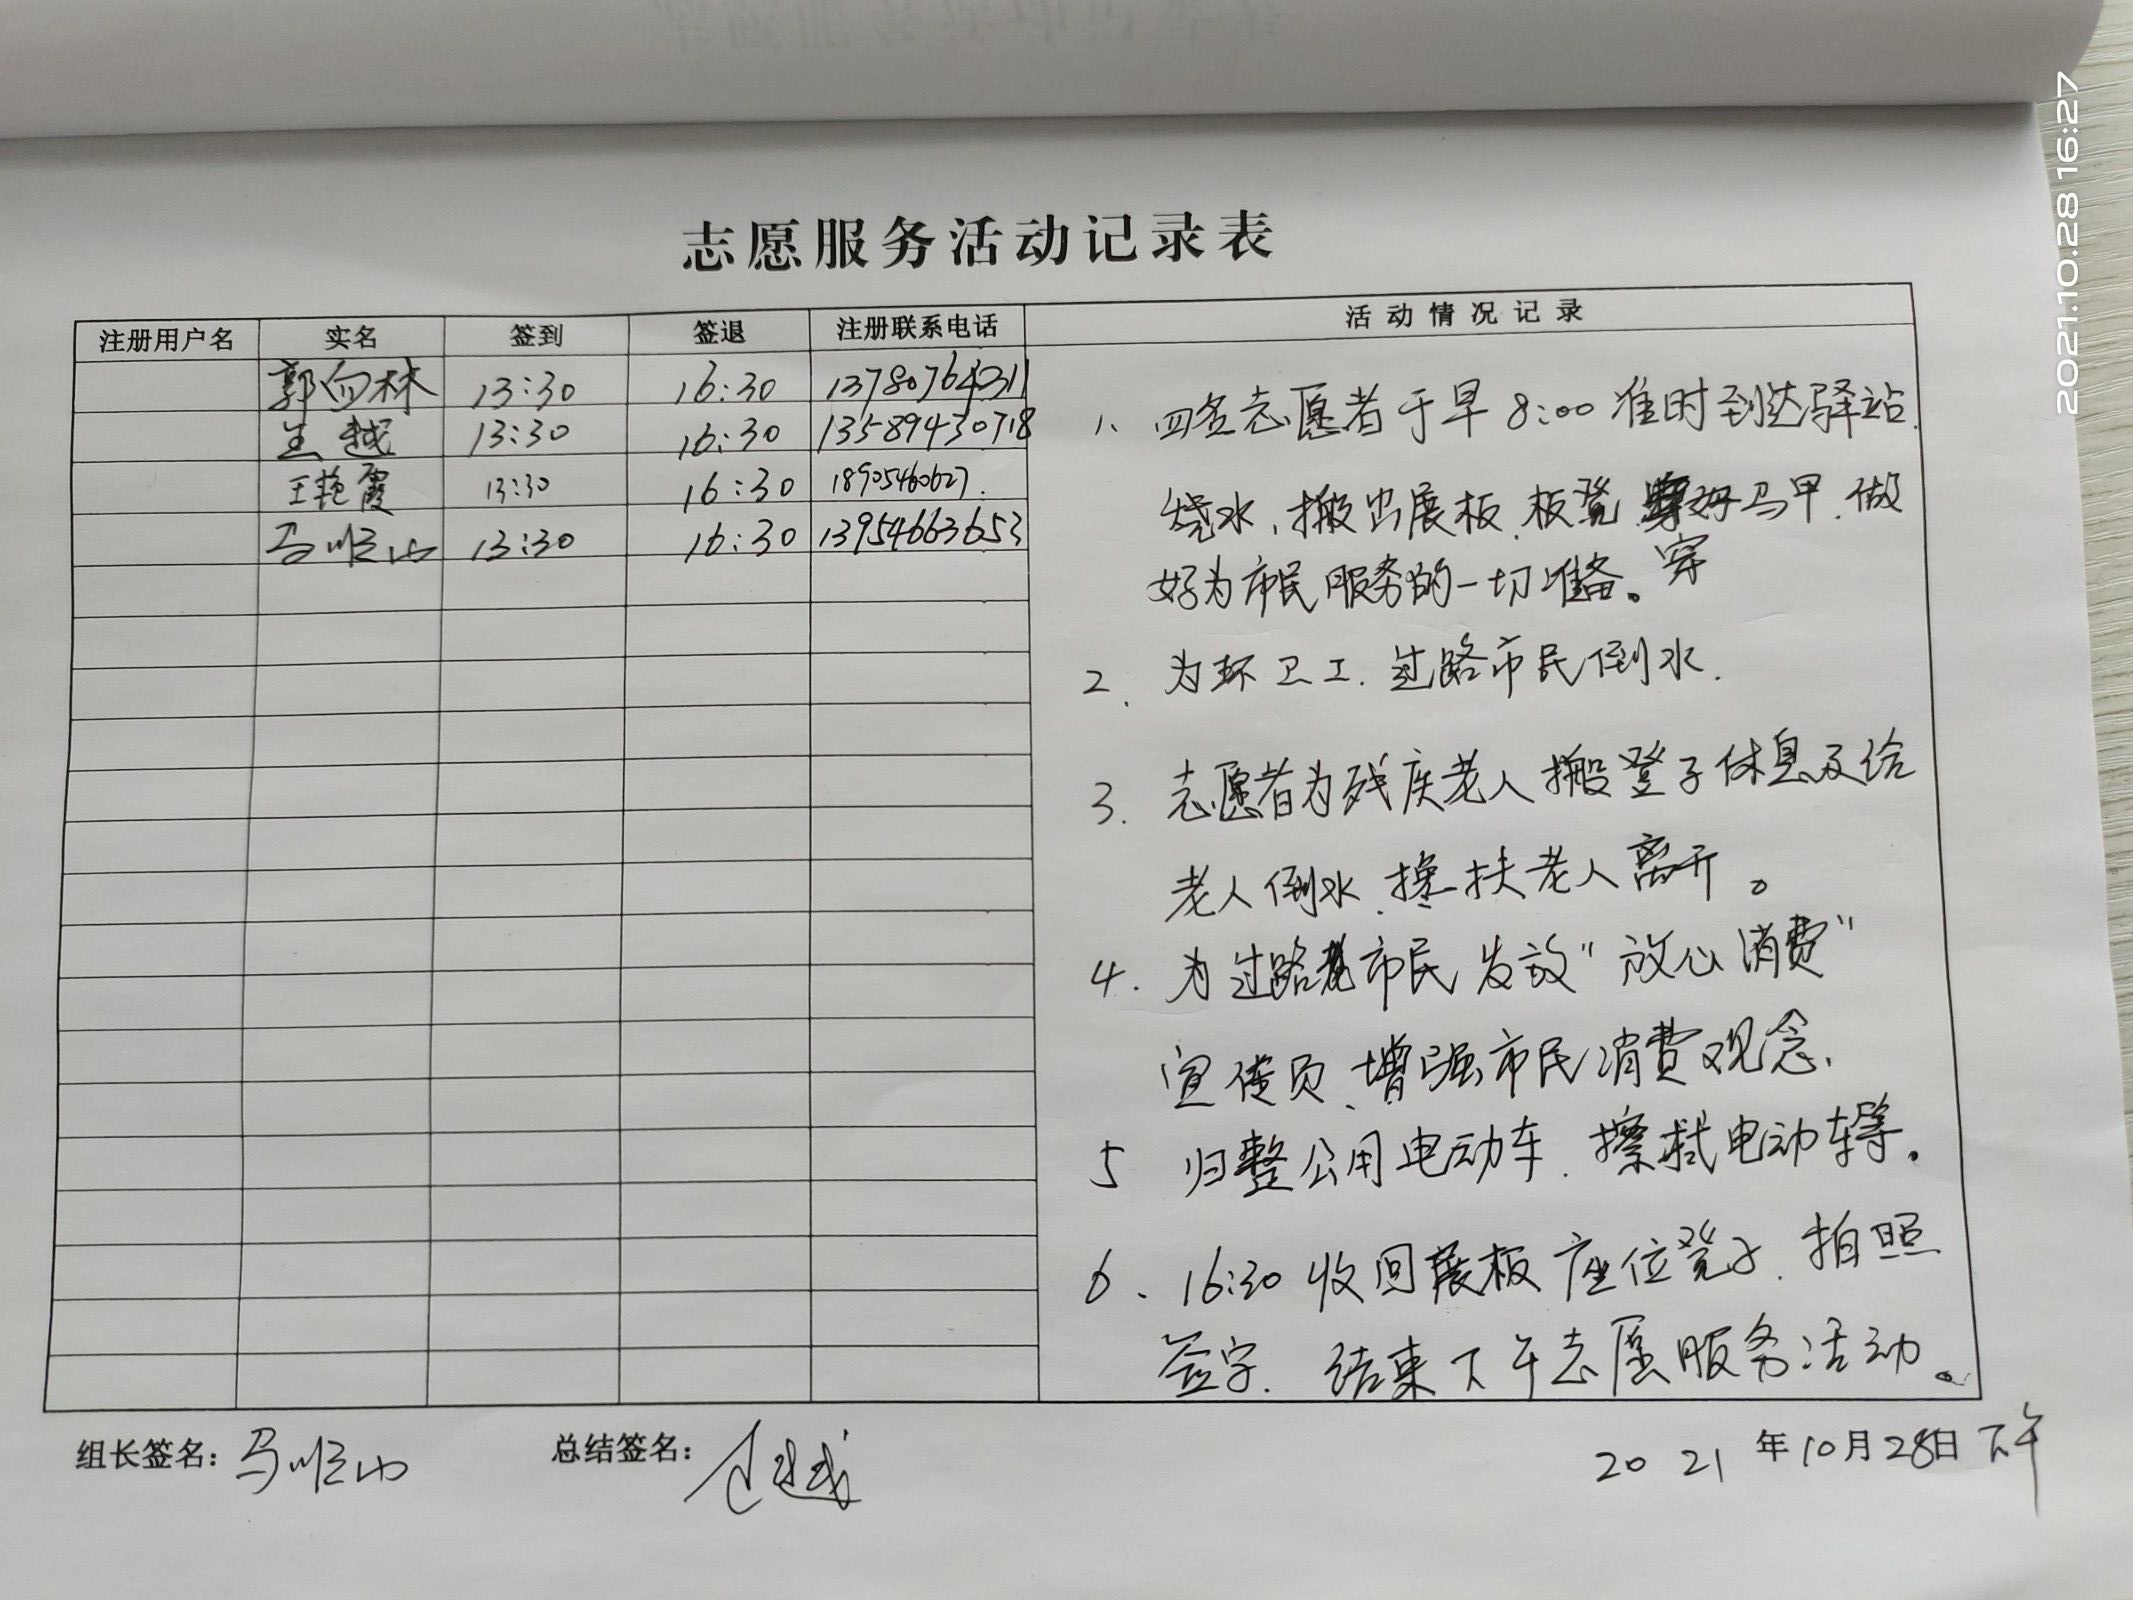 志愿服务活动记录表
注册用户名 实名 签到 签退 注册联系电话 活动情况记录
郭向林 13:30 16:30 13780764311
生越 13:30 16:30 13589430718
王艳霞 13:30 16:30 18905460627.
马顺山 13:30 16:30 13954663653
1、四名志愿者于早8:00准时到达驿站.
烧水、搬出展板、板凳 好马甲、做
穿
好为市民服务的一切准备。
2、为环卫工、过路市民倒水.
3. 志愿者为残疾老人搬登子休息及给
老人倒水、搀扶老人离开。
4. 为过路市民发放"放心消费"
宣传页、增强市民消费观念、
5 归整公用电动车、擦拭电动车等。
6、16:30收回展板座位凳子、拍照
签字、结束下午志愿服务活动。
组长签名:马顺山 总结签名:生越 2021年10月28日下午
2021.10.28 16:27